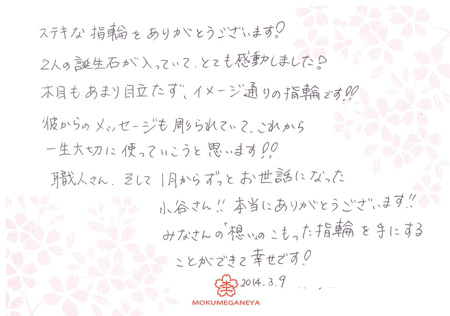 ステキな指輪をありがとうございます!
2人の誕生石が入っていて、とても感動しました!
木目もあまり目立たず、イメージ通りの指輪です!!
彼からのメッセージも彫られていて、これから
一生大切に使っていこうと思います!!
職人さん、そして1月からずっとお世話になった
小谷さん!!本当にありがとうございます!!
みなさんの「想い」のこもった指輪を手にする
ことができて幸せです!
2014.3.9
MOKUMEGANEYA